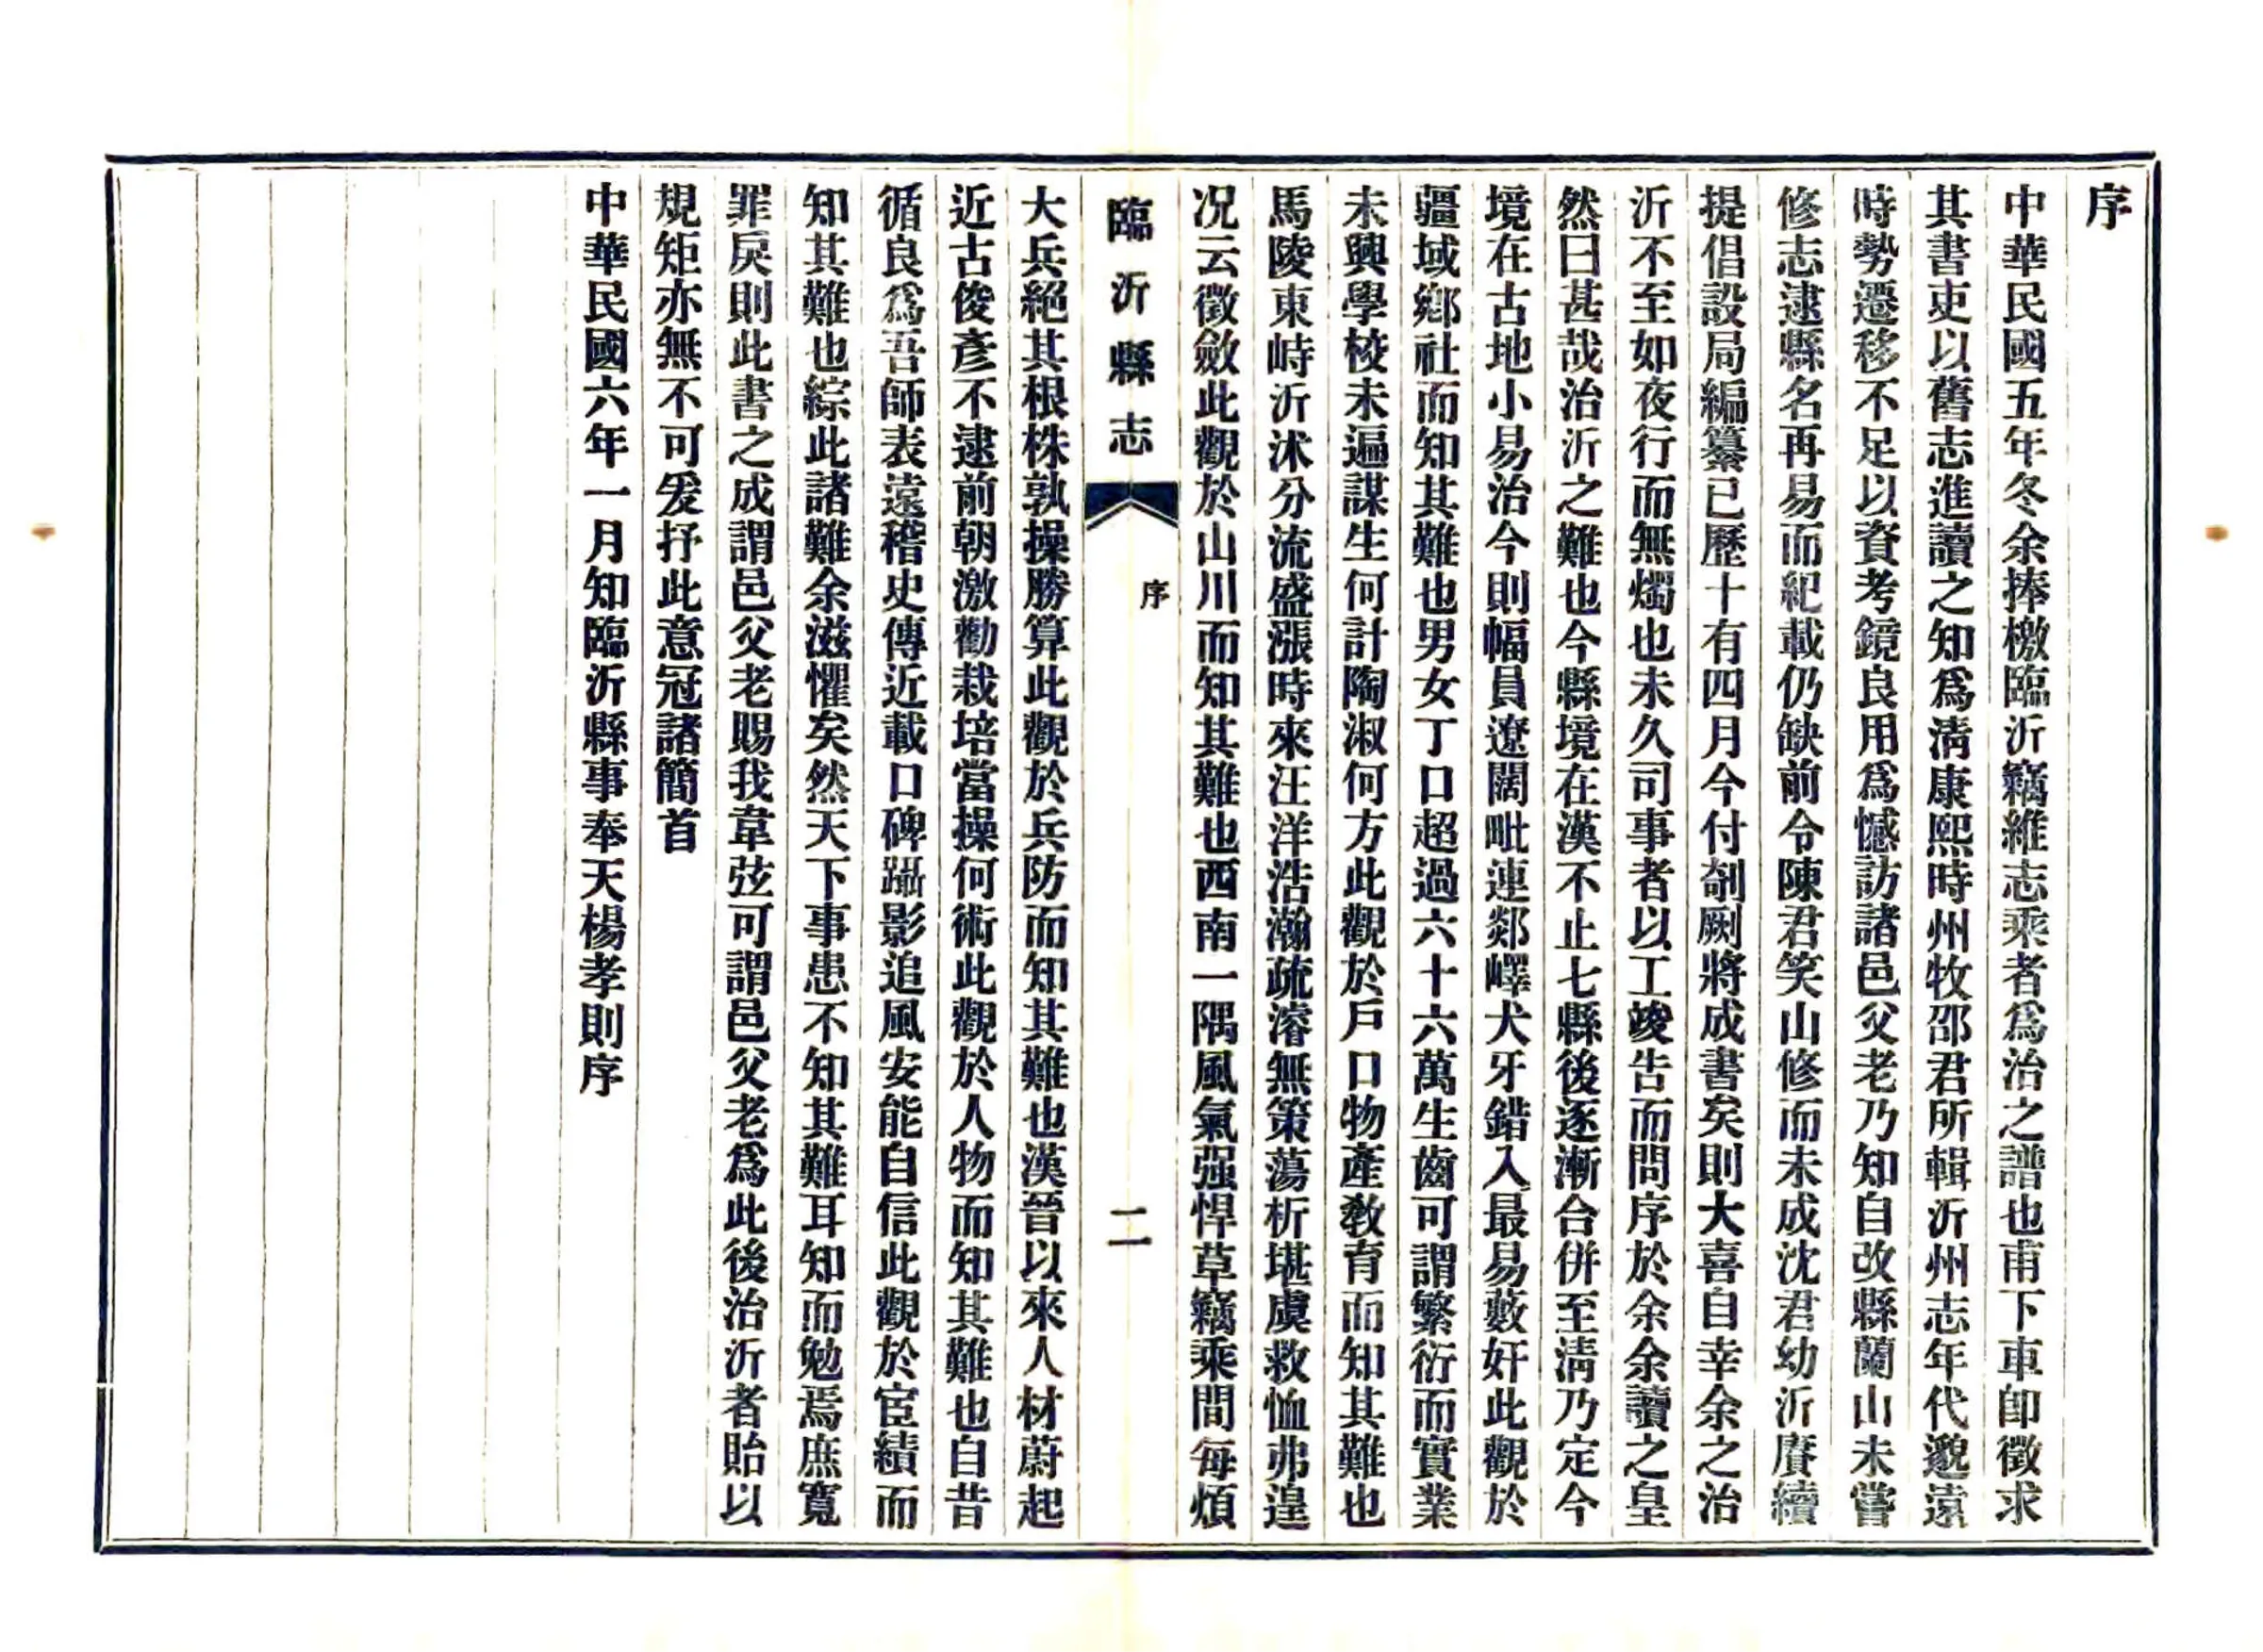 序
中華民國五年冬余捧檄臨沂竊維志乘者爲治之譜也甫下車卽徵求
其書吏以舊志進讀之知爲淸康熙時州牧邵君所輯沂州志年代邈遠
時勢遷移不足以資考鏡良用爲憾訪諸邑父老乃知自改縣蘭山未嘗
修志逮縣名再易而紀載仍缺前令陳君笑山修而未成沈君幼沂賡續
提倡設局編纂已歷十有四月今付剞劂將成書矣則大喜自幸余之治
沂不至如夜行而無燭也未久司事者以工竣告而問序於余余讀之皇
然曰甚哉治沂之難也今縣境在漢不止七縣後逐漸合併至淸乃定今
境在古地小易治今則幅員遼闊毗連郯嶧犬牙錯入最易藪奸此觀於
疆域鄉社而知其難也男女丁口超過六十六萬生齒可謂繁衍而實業
未興學校未遍謀生何計陶淑何方此觀於戶口物產敎育而知其難也
馬陵東峙沂沭分流盛漲時來汪洋浩瀚疏濬無策蕩析堪虞救恤弗遑
况云徵斂此觀於山川而知其難也西南一隅風氣强悍草竊乘間每煩
臨沂縣志
序
二
大兵絕其根株孰操勝算此觀於兵防而知其難也漢晉以來人材蔚起
近古俊彥不逮前朝激勸栽培當操何術此觀於人物而知其難也自昔
循良爲吾師表遠稽史傳近載口碑躡影追風安能自信此觀於宦績而
知其難也綜此諸難余滋懼矣然天下事患不知其難耳知而勉焉庶寬
罪戾則此書之成謂邑父老賜我韋弦可謂邑父老爲此後治沂者貽以
規矩亦無不可爰抒此意冠諸簡首
中華民國六年一月知臨沂縣事奉天楊孝則序